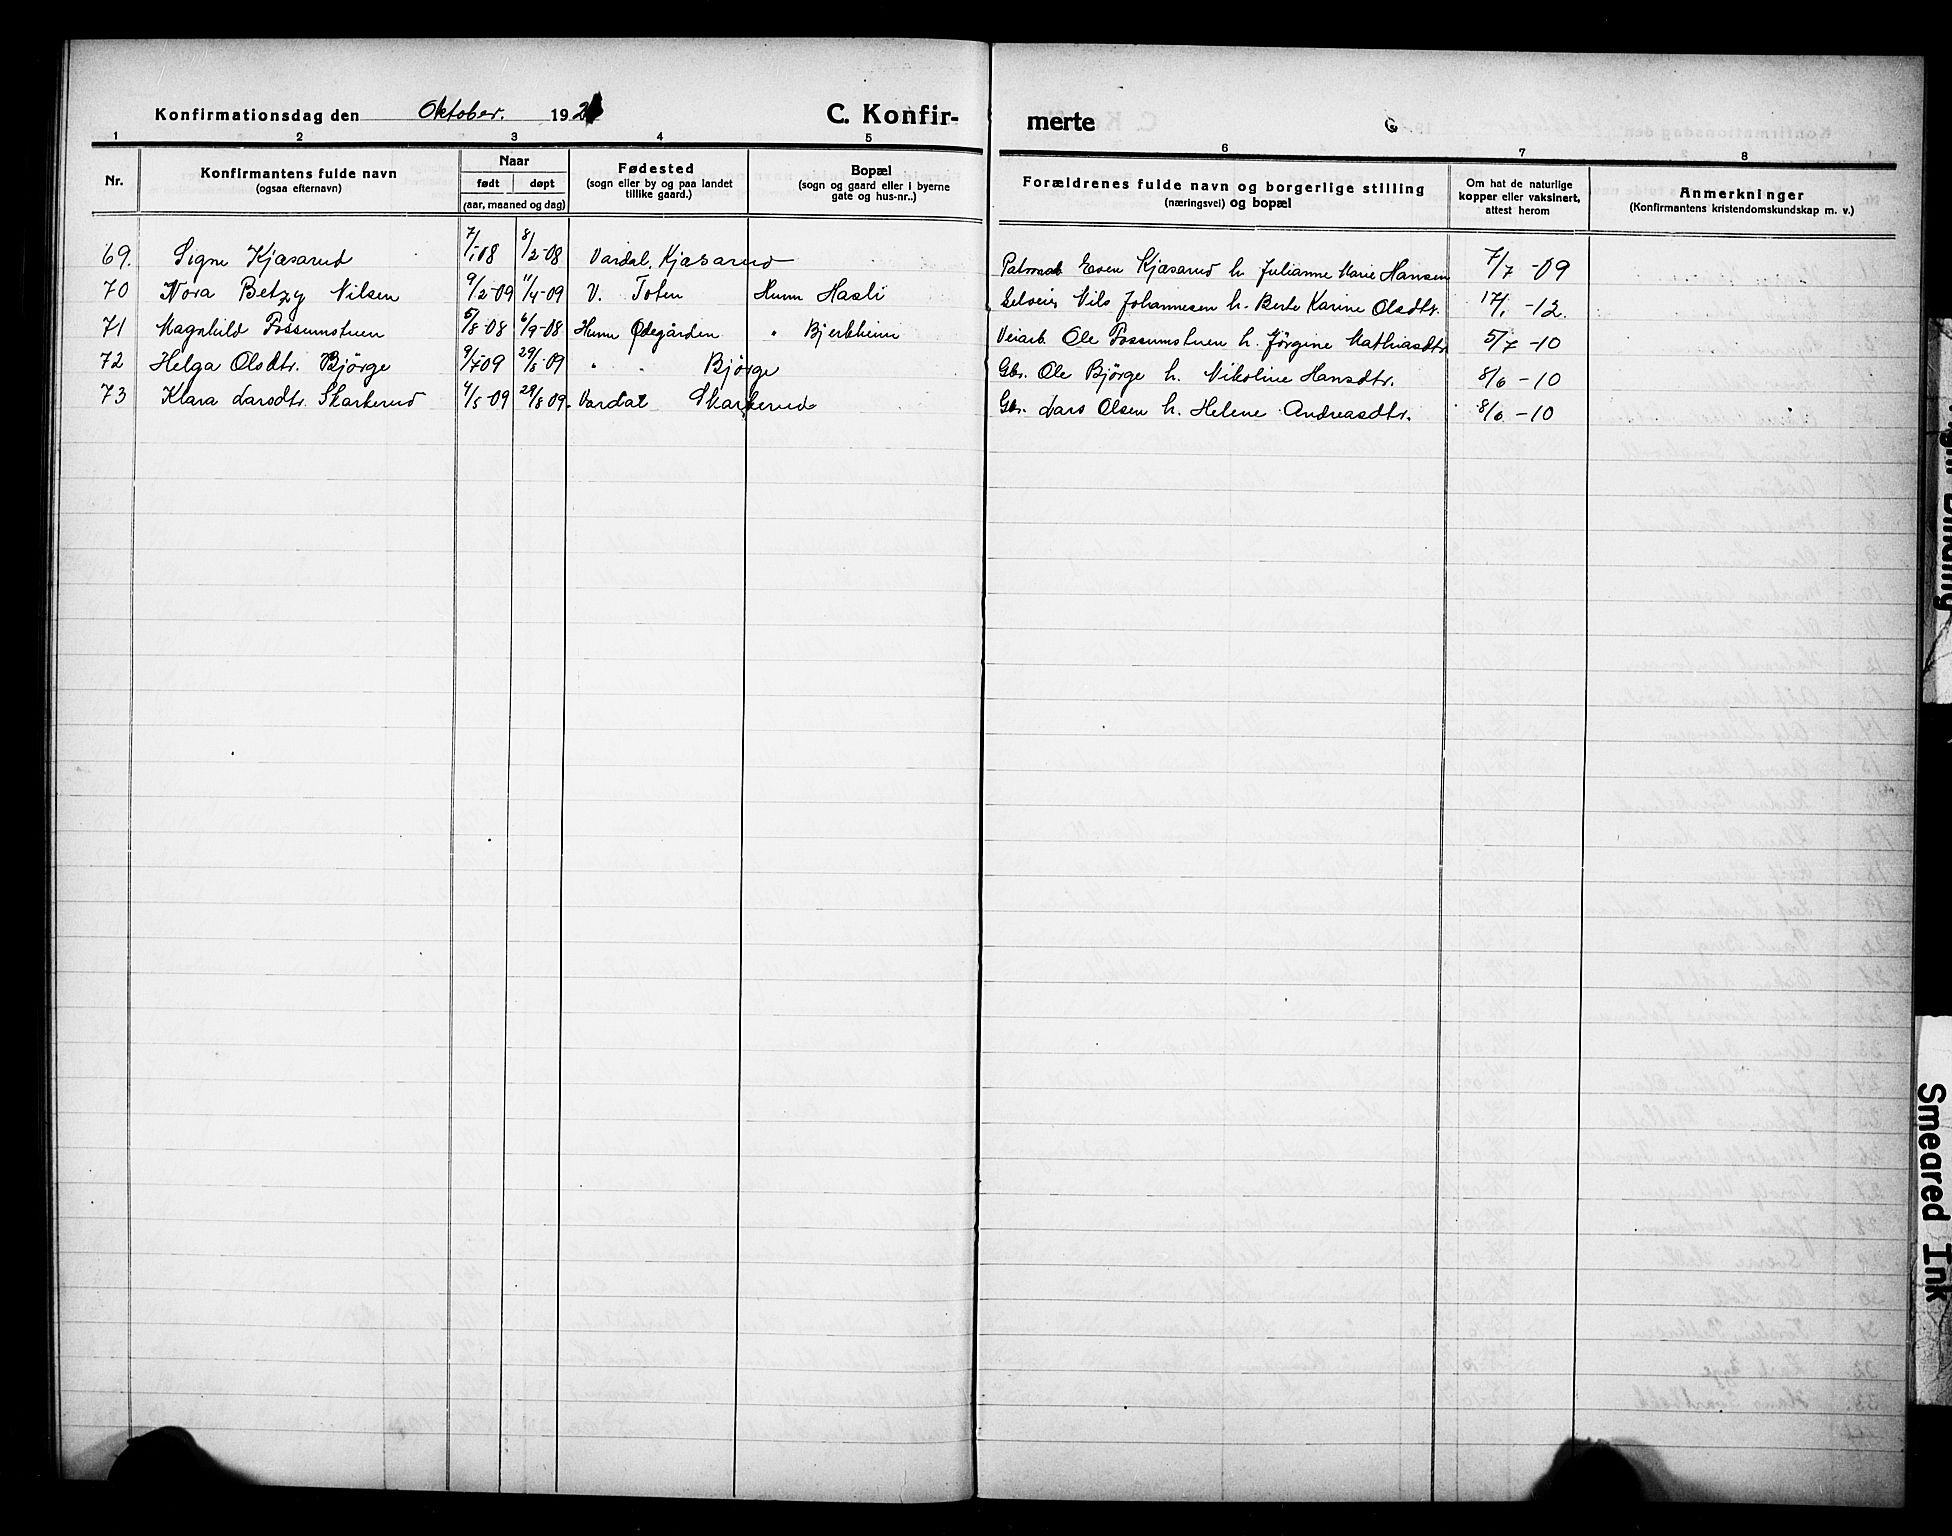 Konfirmationsdag den Oktober. 192
C. Konfir-
merte
1 2 3 4 5 6 7 8
Nr.
Konfirmantens fulde navn
(ogsaa efternavn)
Naar
født døpt
(aar, maaned og dag)
Fødested
(sogn eller by og paa landet
tillike gaard.)
Bopæl
(sogn og gaard eller i byerne
gate og hus-nr..)
Forældrenes fulde navn og borgerlige stilling
(næringsvei) og bopæl
Om hat de naturlige
kopper eller vaksinert,
attest herom
Anmerkninger
(Konfirmantens kristendomskundskap m. v.)
69. Signe Kjæsarud 7/1-08 8/2-08 Vardal, Kjæsarud Even Kjæsarud h. Julianne Marie Hansen 7/7-09
70 Nora Betzy Nilsen 9/2-09 11/4-09 V. Toten Hunn Hasli Nils Johannesen h. Berte Karine Olsdtr. 17/1-12.
71 Magnhild Fossumstuen 5/8-08 6/9-08 Hunn Ødegården " Bjerkheim Veiarb. Ole Fossumstuen h. Jørgine Mathiasdtr 5/7-10
72 Helga Olsdtr. Bjørge 9/7-09 29/8-09 " " Bjørge Gbr. Ole Bjørge h. Nikoline Hansdtr. 8/6-10
73 Klara Larsdtr. Skarkerud 4/5-09 29/8 09. Vardal Skarkerud Gbr. Lars Olsen h. Helene Andreasdtr. 8/6-10
Tight Binding
Smeared Ink